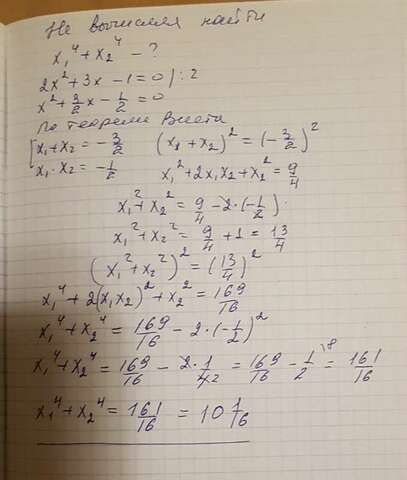 Не вычисляя найти
x₁⁴ + x₂⁴ - ?
2x² + 3x - 1 = 0 | : 2
x² + 3/2 x - 1/2 = 0
По теореме Виета
{ x₁ + x₂ = - 3/2   (x₁ + x₂)² = (- 3/2)²
x₁ · x₂ = - 1/2   x₁² + 2x₁x₂ + x₂² = 9/4
x₁² + x₂² = 9/4 - 2 · (- 1/2)
x₁² + x₂² = 9/4 + 1 = 13/4
(x₁² + x₂²)² = (13/4)²
x₁⁴ + 2(x₁x₂)² + x₂² = 169/16
x₁⁴ + x₂⁴ = 169/16 - 2 · (- 1/2)²
x₁⁴ + x₂⁴ = 169/16 - 2 · 1/42 = 169/16 - 1/2 \8 = 161/16
x₁⁴ + x₂⁴ = 161/16 = 10 1/16